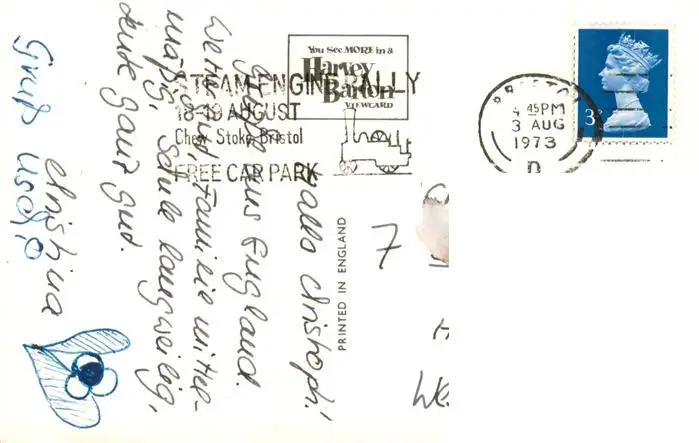 You See MORE in a
Harvey
Barton
VIEWCARD
STEAM ENGINE RALLY
18-19 AUGUST
Chew Stoke, Bristol
FREE CAR PARK
BRISTOL
4 45PM
3 AUG
1973
D
3
PRINTED IN ENGLAND
Hallo Christoph!
Grüße aus England.
Wetter und Familie mittel-
mäßig, Schule langweilig,
Leute ganz gut.
Christina
Gruß
7